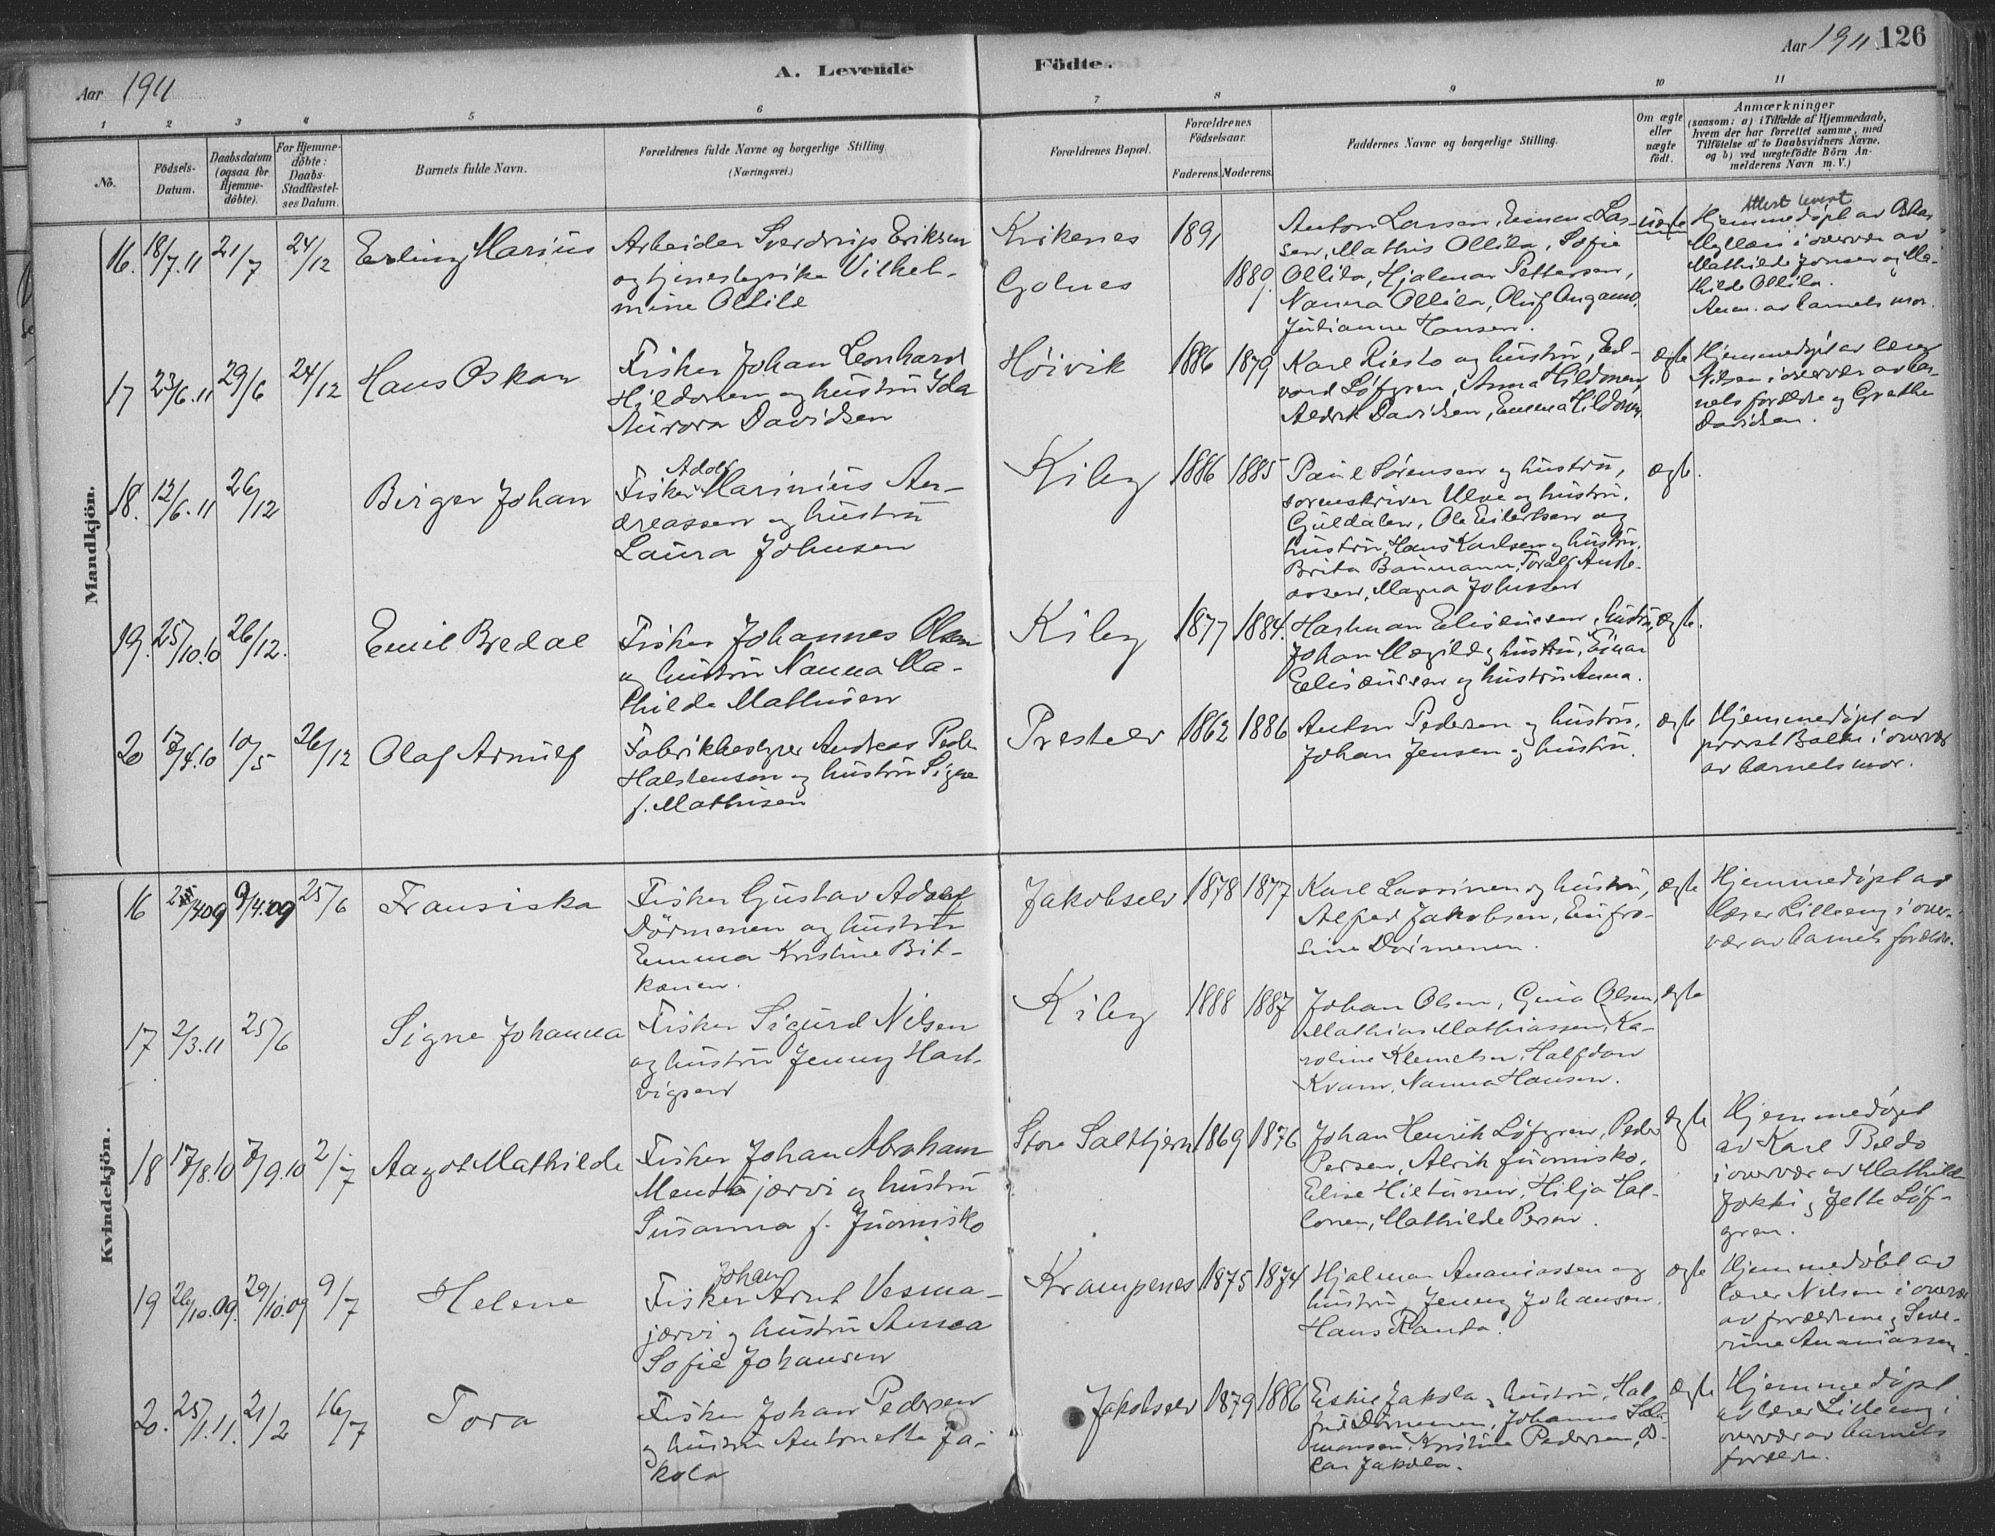 Aar 1911
A. Levende Födte.
Aar 1911. 126
1 2 3 4 5 6 7 8 9 10 11
No.
Födsels-
Datum.
Daabsdatum
(ogsaa for
Hjemme-
döbte).
For Hjemme-
döbte:
Daabs-
Stadfæstel-
ses Datum.
Barnets fulde Navn.
Forældrenes fulde Navne og borgerlige Stilling
(Næringsvei.)
Forældrenes Bopæl.
Forældrenes
Födselsaar.
Faderens. Moderens.
Faddernes Navne og borgerlige Stilling.
Om ægte
eller
uægte
födt.
Anmærkninger
(saasom: a) i Tilfælde af Hjemmedaab,
hvem der har forrettet samme, med
Tilföielse af to Daabsvidners Navne,
og b) ved uægtefödte Börn An-
melderens Navn m. V.)
Mandkjön.
16. 18/7.11 21/7 24/12 Erling Marius
Arbeider Sverdrup Eriksen
og tjenestepike Vilhel-
mine Ollila
Kirkenes 1891
Golnes 1889
Anton Larsen, Emma Lar-
sen, Mathis Ollila, Sofie
Ollila, Hjalmar Pettersen,
Nanna Ollila, Oluf
Julianne Hansen.
uægte
Attest levert
Hjemmedøpt av
i overvær av
Mathilde Jensen og Ma-
thilde Ollila.
Anm. av barnets mor.
17 23/6.11 29/6 24/12 Hans Oskar
Fisker Johan Leonhard
Hildonen og hustru Ida
Aurora Davidsen
Høivik 1886 1879
Karl Riesto og hustru, Ed-
vard Løfgren, Anna Hildonen,
Aldrik Davidsen, Emma Hildonen
ægte
Hjemmedøpt av lærer
Nilsen i overvær av bar-
nets forældre og Grethe
Davidsen.
18. 12/6.11 26/12 Birger Johan
Adolf
Fisker Marinius An-
dreassen og hustru
Laura Johnsen
Kiberg 1886 1885
Paul Sørensen og hustru,
sorenskriver Ulve og hustru,
Guldalen, Ole Eilertsen og
hustru, Hans Karlsen og hustru,
Brita Baumann, Toralf Andre-
assen, Magna Johnsen
ægte.
19. 25/10.10 26/12. Emil Bredal
Fisker Johannes Olsen
og hustru Nanna Ma-
thilde Mathisen
Kiberg 1877 1884.
Hartman Eliseussen, hustru,
Johan og hustru, Einar
Eliseussen og hustru Anna.
ægte.
20 17/4.10 10/5 26/12 Olaf Arnulf
Fabrikbestyrer Andreas Peder
Halstensen og hustru Signe
f. Mathisen
Prestelv 1862 1886
Anton Pedersen og hustru,
Johan Jensen og hustru.
ægte
Hjemmedøpt av
prost Balke i overvær
av barnets mor.
Kvindekjön.
16 4.09 9/4.09 25/6 Fransiska
Fisker Gustav Adolf
Dørmenen og hustru
Emma Kristine Bit-
kanen.
Jakobselv 1878 1877
Karl Lassinen og hustru,
Alfred Jakobsen, Eufro-
sine Dørmenen.
ægte
Hjemmedøpt av
lærer Lilleeng i over-
vær av barnets forældre.
17 2/3.11 25/6 Signe Johanna
Fisker Sigurd Nilsen
og hustru Jenny Hart-
vigsen
Kiberg 1888 1887
Johan Olsen, Gina Olsen,
Mathias Mathiassen, Ka-
roline Klemetsen, Halfdan
Kvam, Nanna Hansen.
ægte
18 17/8.10 7/9.10 2/7 Aagot Mathilde
Fisker Johan Abraham
Mentøjærvi og hustru
Susanna f. Juomisko
Store Saltbjern 1869 1876
Johan Henrik Løfgren, Peder
Persen, Alrik Juomisko,
Elise Hietunen, Hilja Hal-
lonen, Mathilde Persen.
ægte
Hjemmedøpt
av Karl Beldo
i overvær av Mathilde
Jokki og Jette Løf-
gren.
19 26/10.09. 29/10.09 9/7 Helene
Johan
Fisker Arnt Vesma-
jærvi og hustru Anna
Sofie Johansen
Krampenes 1875 1874
Hjalmar Ananiassen og
hustru, Jenny Johansen
Hans Ranta.
ægte
Hjemmedøbt av
lærer Nilsen i overvær
av forældrene og Seve-
rine Ananiassen.
20. 25/1.11. 21/2 16/7 Tora
Fisker Johan Pedersen
og hustru Antonette Ja-
kola
Jakobselv 1879 1886
Eskil Jakola og hustru, Hal-
frid Dørmenen, Johanna Salo-
monsen, Kristine Pedersen,
Jakola.
ægte
Hjemmedøpt
av lærer Lilleeng i
overvær av barnets
forældre.